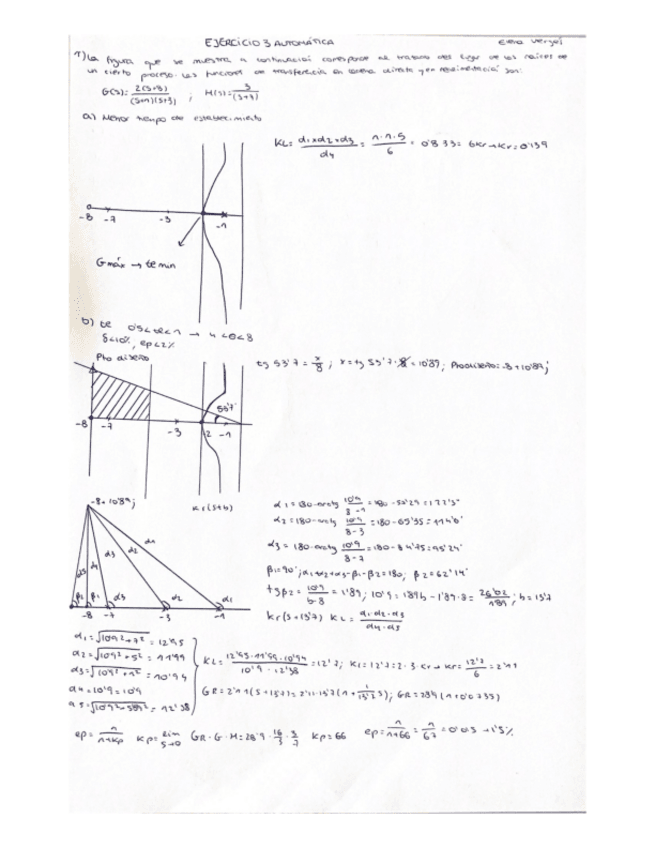 EJERCICIO 3 AUTOMÁTICA
Elena Vergel
1) La figura que se muestra a continuación corresponde al trazado del lugar de las raíces de
un cierto proceso. Las funciones de transferencia en cadena directa y en realimentación son:
G(s): 2(s+8)/(s+1)(s+3) ; H(s)= 3/(s+7)
a) Menor tiempo de establecimiento
KL= d1×d2×d3/d4 = 1·1·5/6 = 0'833= 6Kr→Kr=0'139
-8 -7 -3 -1
Gmáx → te min
b) te 0'5<te<1 → 4<σ<8
δ<10%, ep<2%
Pto diseño
tg 53'7 = x/8 ; x=tg 53'7·8=10'89; Pto diseño=-8+10'89j
53'7
-8 -7 -3 -2 -1
-8+10'89j
Kr(s+b)
α1=180-arctg 10'9/8-1 =180-
α2=180-arctg 10'9/8-3 =180-65'35=114'6º
α3=180-arctg 10'9/8-7 =180-84'75=95'24º
β1=90º; α1+α2+α3-β1-β2=180; β2=62'14º
tgβ2= 10'9/b-8 =1'89; 10'9=1'89b-1'89·8= 26'02/1'89 ; b=13'7
Kr(s+13'7) KL= d1·d2·d3/d4·d5
d5 d4 d3 d2 d1
β2 β1 α3 α2 α1
-8 -7 -3 -1
d1=√10'9²+7² = 12'95
d2=√10'9²+5² = 11'99
d3=√10'9²+1² = 10'94
d4=10'9=10'9
KL= 12'95·11'99·10'94/10'9·12'38 =12'7; KL=12'7=2·3·Kr→Kr= 12'7/6 =2'11
ep= 1/1+Kp Kp=lim s→0 GR·G·H=28'9· 16/3 · 3/7 Kp=66 ep= 1/1+66 = 1/67 =0'015 → 1'5%